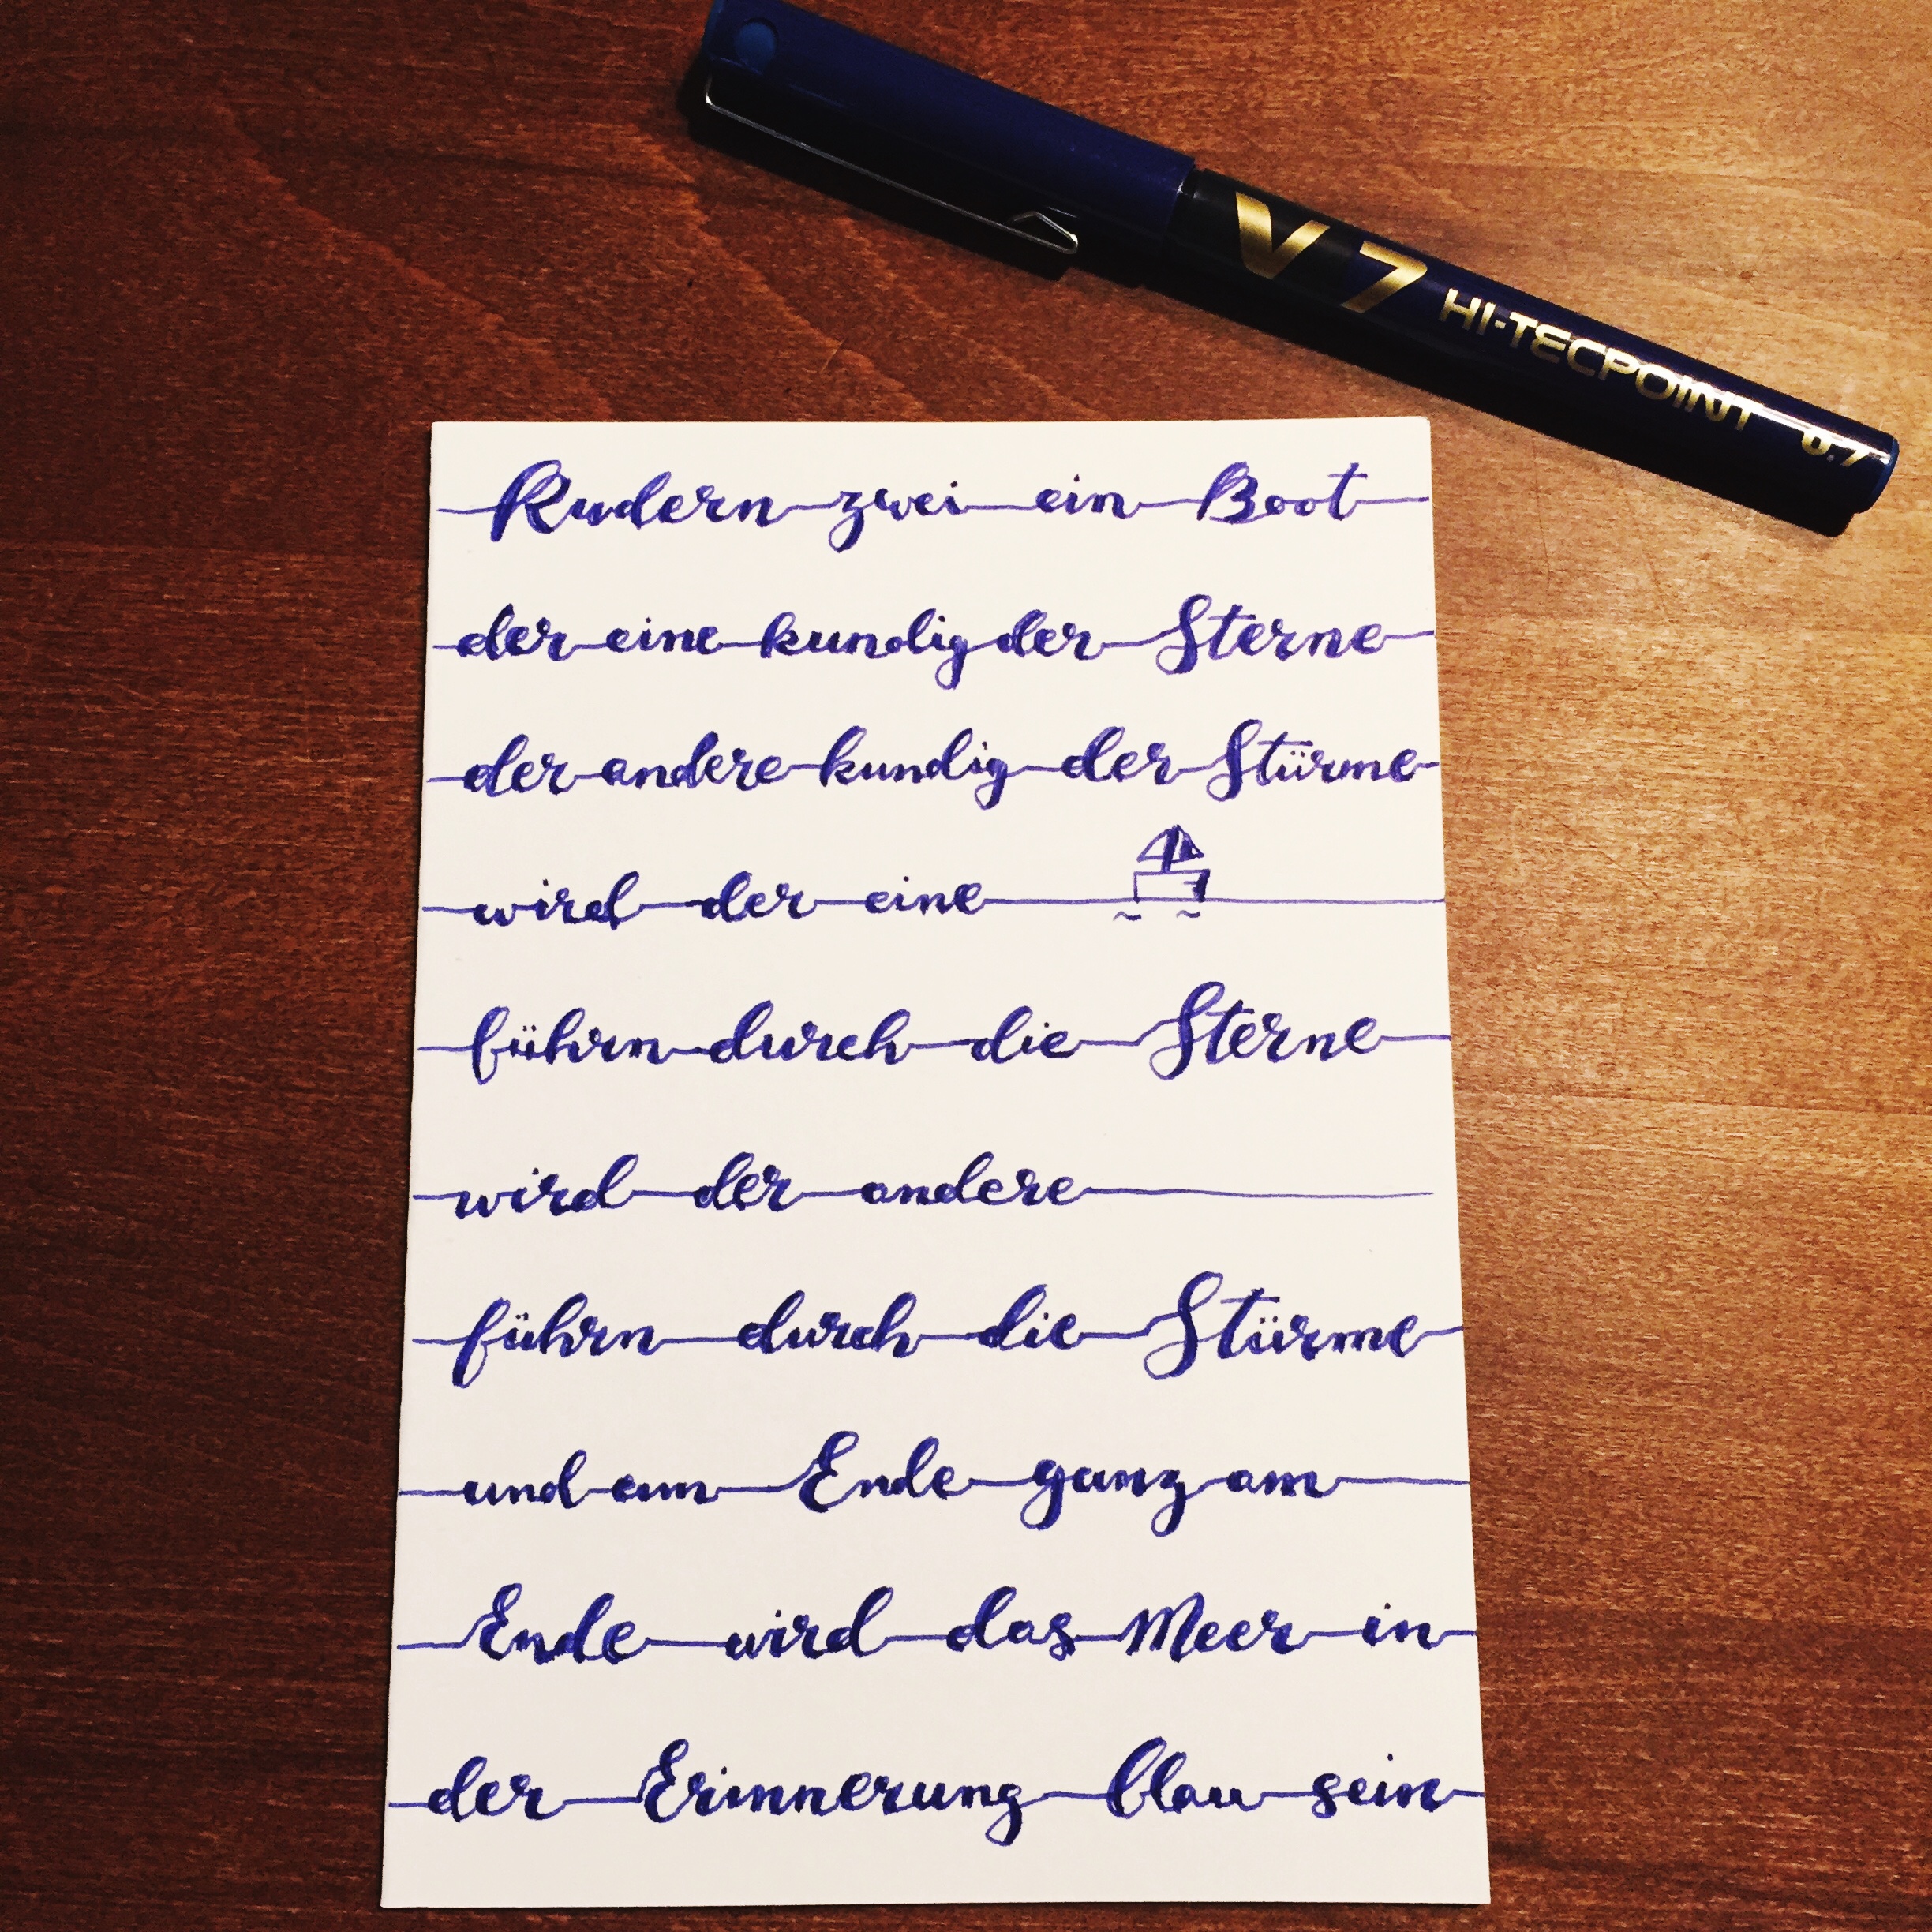 V7 HI-TECPOINT 0.7
Rudern zwei ein Boot
der eine kundig der Sterne
der andere kundig der Stürme
wird der eine
führn durch die Sterne
wird der andere
führn durch die Stürme
und am Ende ganz am
Ende wird das Meer in
der Erinnerung blau sein